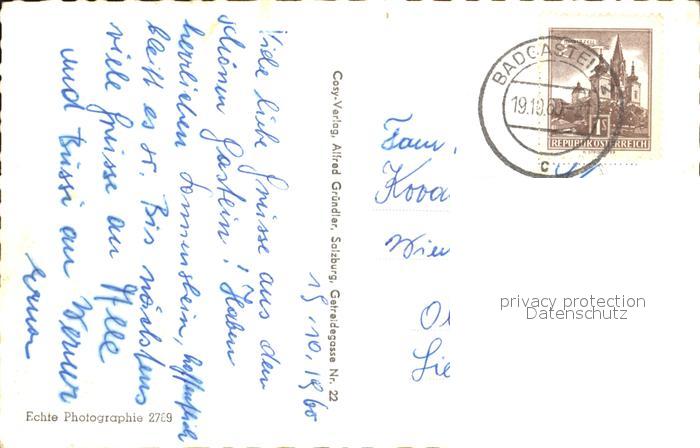 19.10.1960
Viele liebe Grüsse aus den
schönen Gastein! Haben
herrlichen Sonnenschein, hoffentlich
bleibt es so. Bis nächstens
viele Grüsse an Alle
und Bussi an Werner
Erna
Cosy-Verlag, Alfred Gründler, Salzburg, Getreidegasse Nr. 22
Echte Photographie 2769
BADGASTEIN
19.10.60
C
1S
REPUBLIK ÖSTERREICH
Fam.
Kova
Wien
privacy protection
Datenschutz